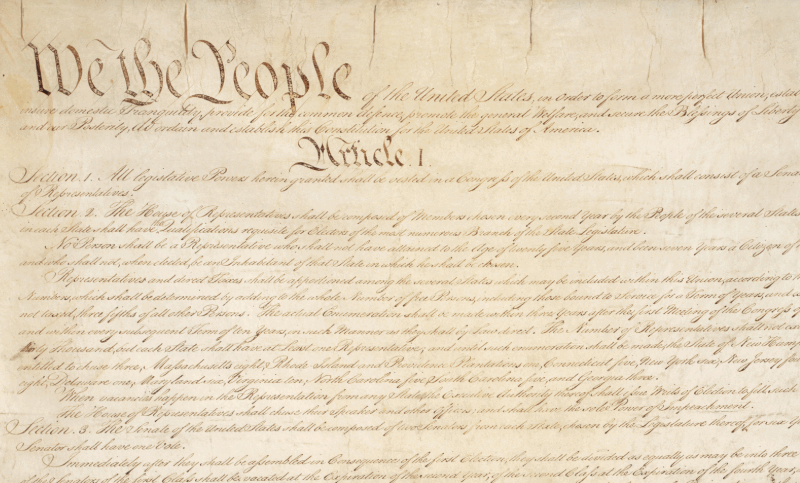 We the People of the United States, in Order to form a more perfect Union, estab
insure domestic Tranquility, provide for the common defence, promote the general Welfare, and secure the Blessings of Liberty
and our Posterity, do ordain and establish this Constitution for the United States of America.
Article. I.
Section. 1. All legislative Powers herein granted shall be vested in a Congress of the United States, which shall consist of a Senat
of Representatives.
Section. 2. The House of Representatives shall be composed of Members chosen every second Year by the People of the several States
in each State shall have Qualifications requisite for Electors of the most numerous Branch of the State Legislature.
No Person shall be a Representative who shall not have attained to the Age of twenty five Years, and been seven Years a Citizen of
and who shall not, when elected, be an Inhabitant of that State in which he shall be chosen.
Representatives and direct Taxes shall be apportioned among the several States which may be included within this Union, according to
Numbers, which shall be determined by adding to the whole Number of free Persons, including those bound to Service for a Term of Years, and
not taxed, three fifths of all other Persons. The actual Enumeration shall be made within three Years after the first Meeting of the Congress of
and within every subsequent Term of ten Years, in such Manner as they shall by Law direct. The Number of Representatives shall not
thirty Thousand, but each State shall have at Least one Representative; and until such enumeration shall be made, the State of New Hamp
entitled to chuse three, Massachusetts eight, Rhode Island and Providence Plantations one, Connecticut five, New York six, New Jersey four
eight, Delaware one, Maryland six, Virginia ten, North Carolina five, South Carolina five, and Georgia three.
When vacancies happen in the Representation from any State, the Executive Authority thereof shall issue Writs of Election to fill such
The House of Representatives shall chuse their Speaker and other Officers; and shall have the sole Power of Impeachment.
Section. 3. The Senate of the United States shall be composed of two Senators from each State, chosen by the Legislature thereof, for six Y
Senator shall have one Vote.
Immediately after they shall be assembled in Consequence of the first Election, they shall be divided as equally as may be into three
of the Senators of the first Class shall be vacated at the Expiration of the second Year, of the second Class at the Expiration of the fourth Year,